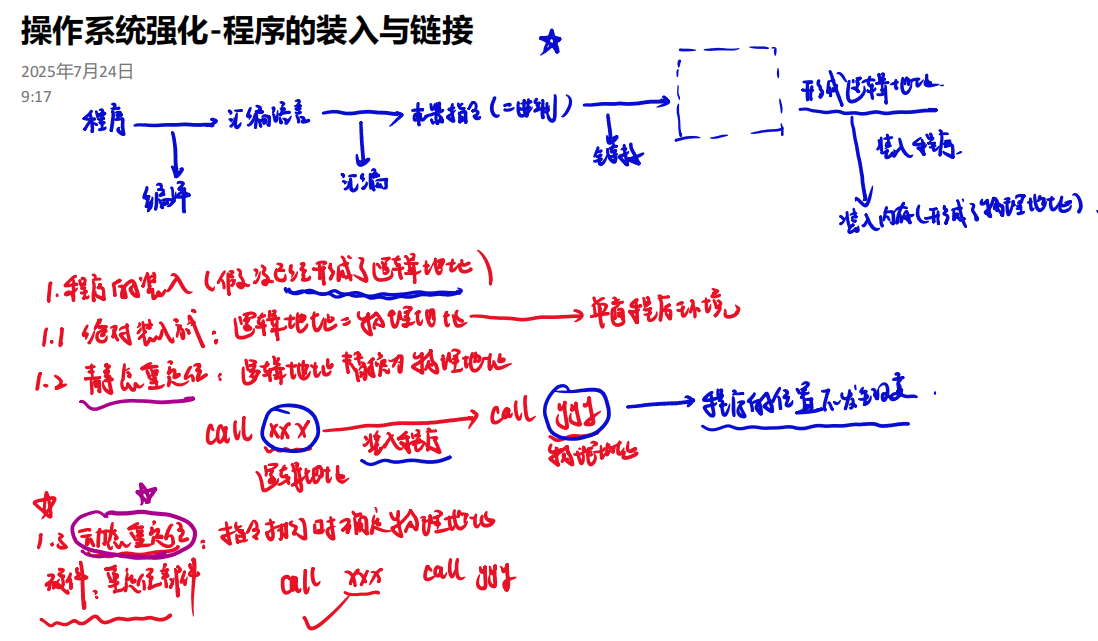 操作系统强化-程序的装入与链接
2025年7月24日
9:17
程序 汇编语言 本条指令(二进制) 形成逻辑地址
编译 汇编 链接 装入程序
装入内存(形成了物理地址).
1.程序的装入(假设已经形成了逻辑地址)
1.1 绝对装入式:逻辑地址=物理地址 单道程序环境
1.2 静态重定位:逻辑地址 物理地址
call xxx call yyy 程序的位置不发生改变.
装入程序
逻辑地址 物理地址
1.3 动态重定位:指令执行时确定物理地址
硬件:重定位部件
call xxx call yyy